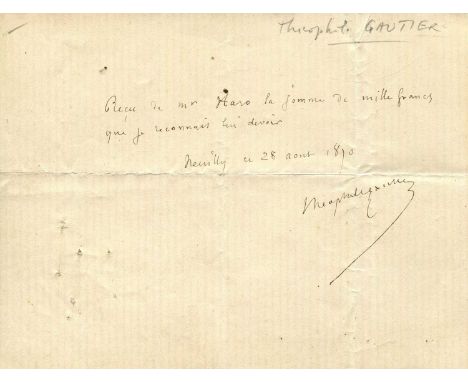 Théophile GAUTIER
Reçu de mr Haro la somme de mille francs
que je reconnais lui devoir
Neuilly ce 28 aout 1870
Theophile Gautier